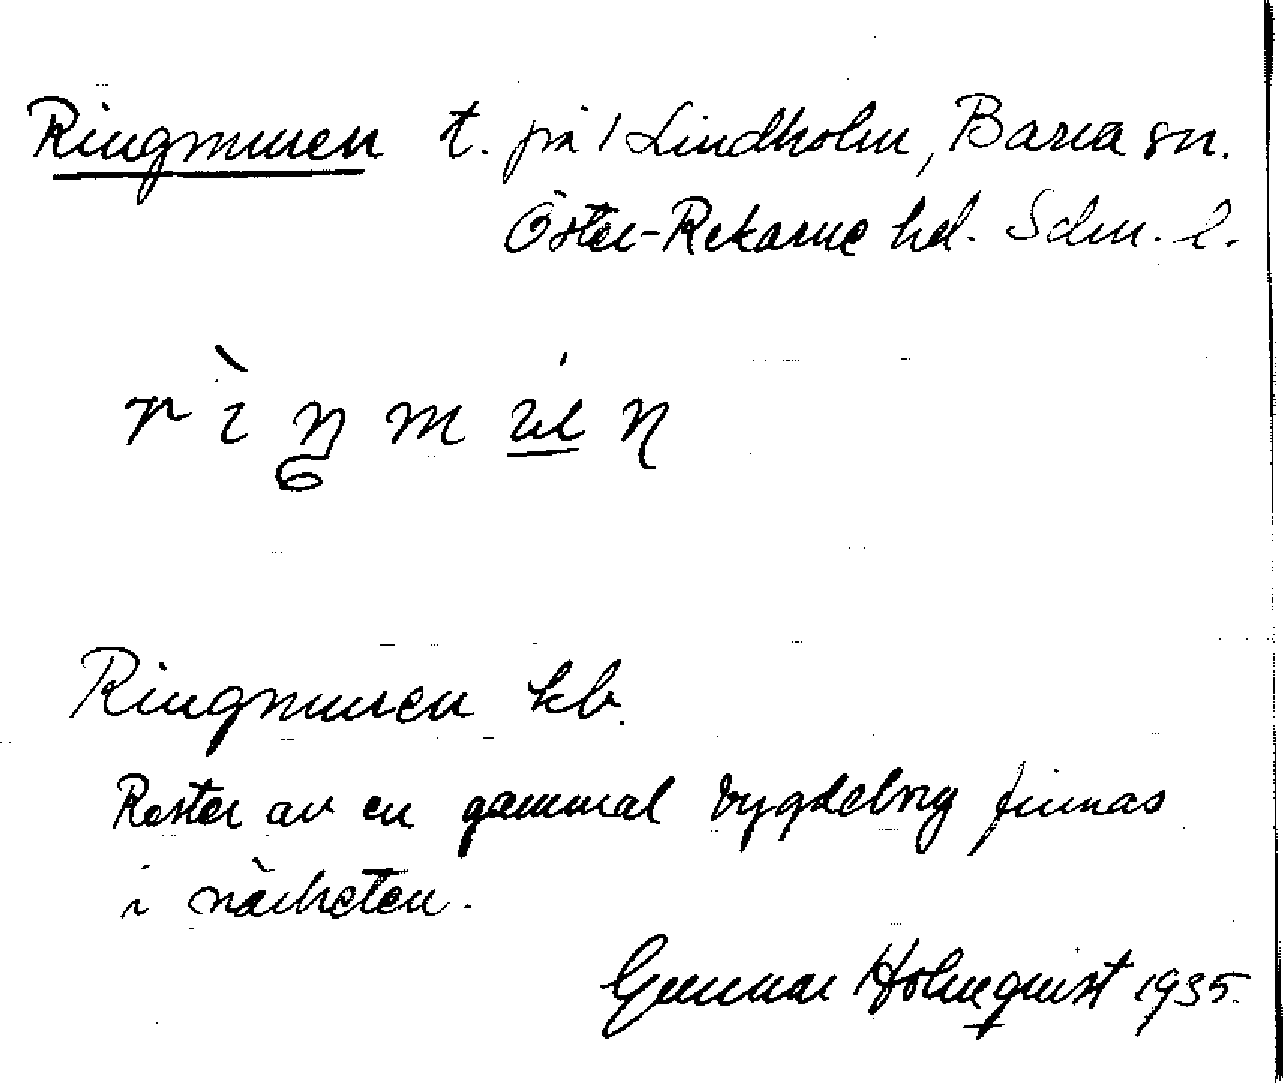 Ringmuren t. på 1 Lindholm, Barva sn.
Öster-Rekarne hd. Södm. l.
Ringmuren kb.
Rester av en gammal bygdeborg finnas
i närheten.
Gunnar Holmquist 1935.